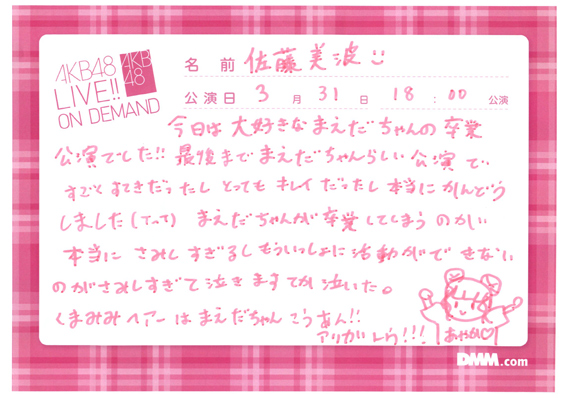 AKB48
LIVE!!
ON DEMAND
AKB
48
名前 佐藤美波
公演日 3月31日 18:00 公演
今日は大好きなまえだちゃんの卒業
公演でした!! 最後までまえだちゃんらしい公演で
すごくすてきだったしとってもキレイだったし本当にかんどう
しました(T^T) まえだちゃんが卒業してしまうのがい
本当にさみしすぎるしもういっしょに活動ができない
のがさみしすぎて泣きますてか泣いた。
くまみみヘアーはまえだちゃんこうあん!!
アリガトウ!!!
あやか♡
DMM.com